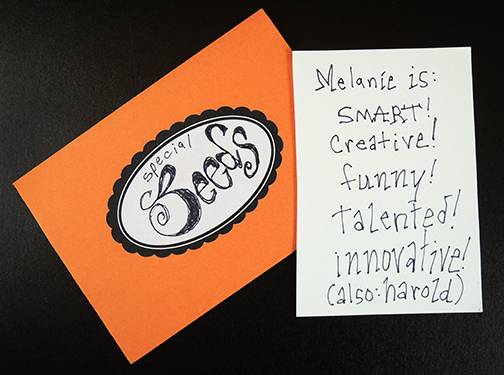 special
Seeds
Melanie is:
SMART!
Creative!
funny!
talented!
innovative!
(also: harold)